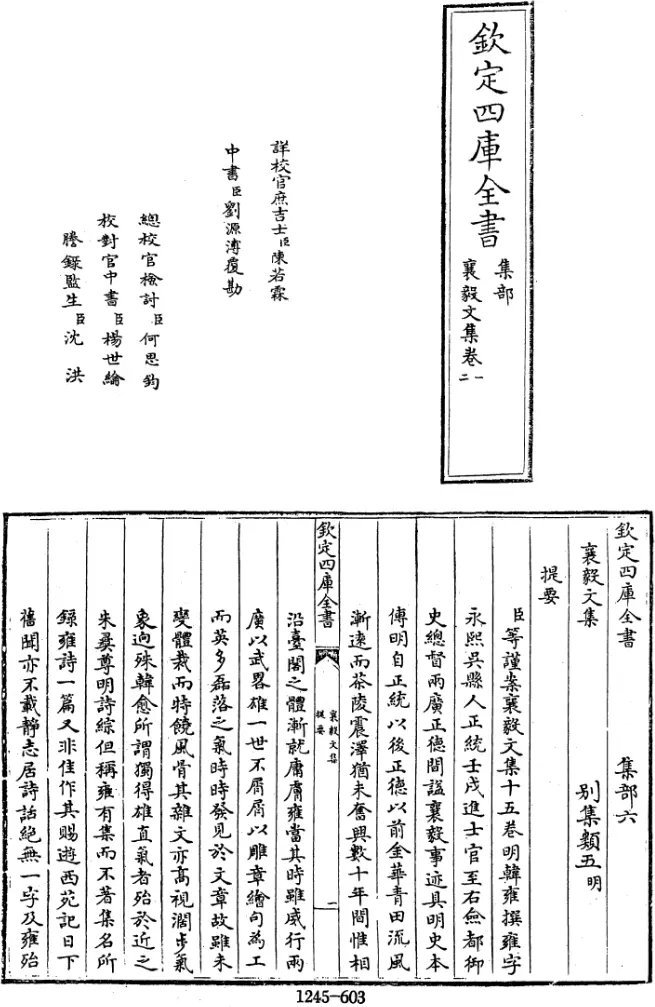 欽定四庫全書
集部
襄毅文集卷一
二
詳校官庶吉士臣陳若霖
中書臣劉源溥覆勘
總校官檢討臣何思鈞
校對官中書臣楊世綸
謄錄監生臣沈洪
欽定四庫全書 集部六
襄毅文集 別集類五明
提要
臣等謹案襄毅文集十五卷明韓雍撰雍字
永熙吳縣人正統壬戌進士官至右僉都御
史總督兩廣正德間諡襄毅事迹具明史本
傳明自正統以後正德以前金華青田流風
漸遠而茶陵震澤猶未奮興數十年間惟相
欽定四庫全書
襄毅文集
提要
一
沿臺閣之體漸就庸膚雍當其時雖威行兩
廣以武畧雄一世不屑屑以雕章繪句為工
而英多磊落之氣時時發見於文章故雖未
變體裁而特饒風骨其雜文亦高視濶步氣
象迥殊韓愈所謂獨得雄直氣者殆於近之
朱彝尊明詩綜但稱雍有集而不著集名所
錄雍詩一篇又非佳作其賜遊西苑記日下
舊聞亦不載靜志居詩話絶無一字及雍殆
1245-603